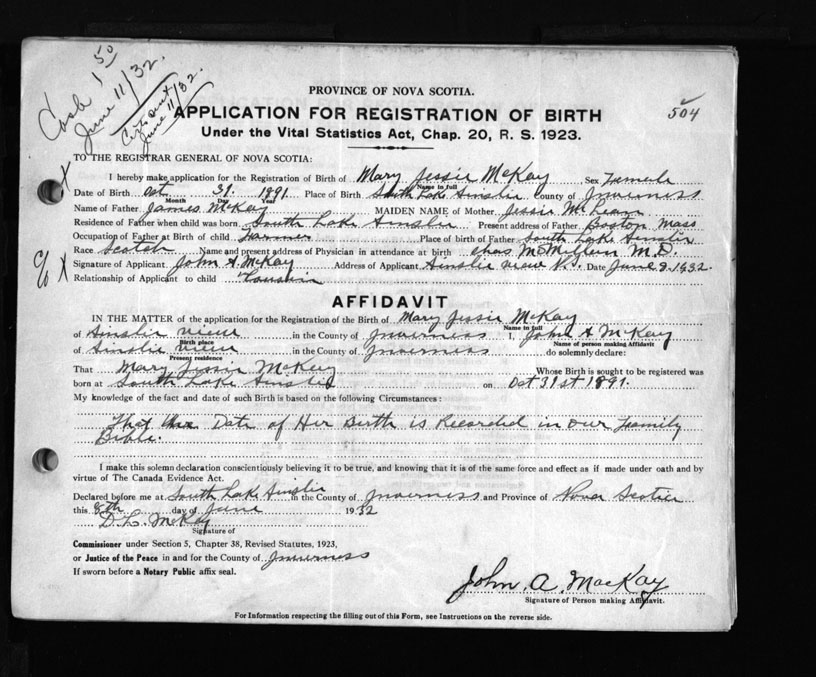 Cash 1 50
June 11/32.
Cert out
June 11/32.
504
PROVINCE OF NOVA SCOTIA.
APPLICATION FOR REGISTRATION OF BIRTH
Under the Vital Statistics Act, Chap. 20, R. S. 1923.
TO THE REGISTRAR GENERAL OF NOVA SCOTIA:
I hereby make application for the Registration of Birth of Mary Jessie McKay Sex Female
Name in full
Date of Birth Oct 31. 1891 Place of Birth South Lake Ainslie County of Inverness
Month Day Year
Name of Father James McKay MAIDEN NAME of Mother Jessie McLean
Residence of Father when child was born South Lake Ainslie Present address of Father Boston Mass
Occupation of Father at Birth of child Farmer Place of birth of Father South Lake Ainslie
Race Scotch Name and present address of Physician in attendance at birth Chas McMillan M.D.
Signature of Applicant John A. McKay Address of Applicant Ainslie View N.S. Date June 9. 1932.
Relationship of Applicant to child Cousin
AFFIDAVIT
IN THE MATTER of the application for the Registration of the Birth of Mary Jessie McKay
Name in full
of Ainslie View in the County of Inverness I, John A McKay
Birth place Name of person making Affidavit
of Ainslie View in the County of Inverness do solemnly declare:
Present residence
That Mary Jessie McKay Whose Birth is sought to be registered was
born at South Lake Ainslie on Oct 31st 1891.
My knowledge of the fact and date of such Birth is based on the following Circumstances:
That the Date of Her Birth is Recorded in our Family
Bible.
I make this solemn declaration conscientiously believing it to be true, and knowing that it is of the same force and effect as if made under oath and by
virtue of The Canada Evidence Act.
Declared before me at South Lake Ainslie in the County of Inverness and Province of Nova Scotia
this 8th day of June 1932
D. L. McKay
Signature of
Commissioner under Section 5, Chapter 38, Revised Statutes, 1923,
or Justice of the Peace in and for the County of Inverness
If sworn before a Notary Public affix seal.
John. A. MacKay
Signature of Person making Affidavit.
For Information respecting the filling out of this Form, see Instructions on the reverse side.